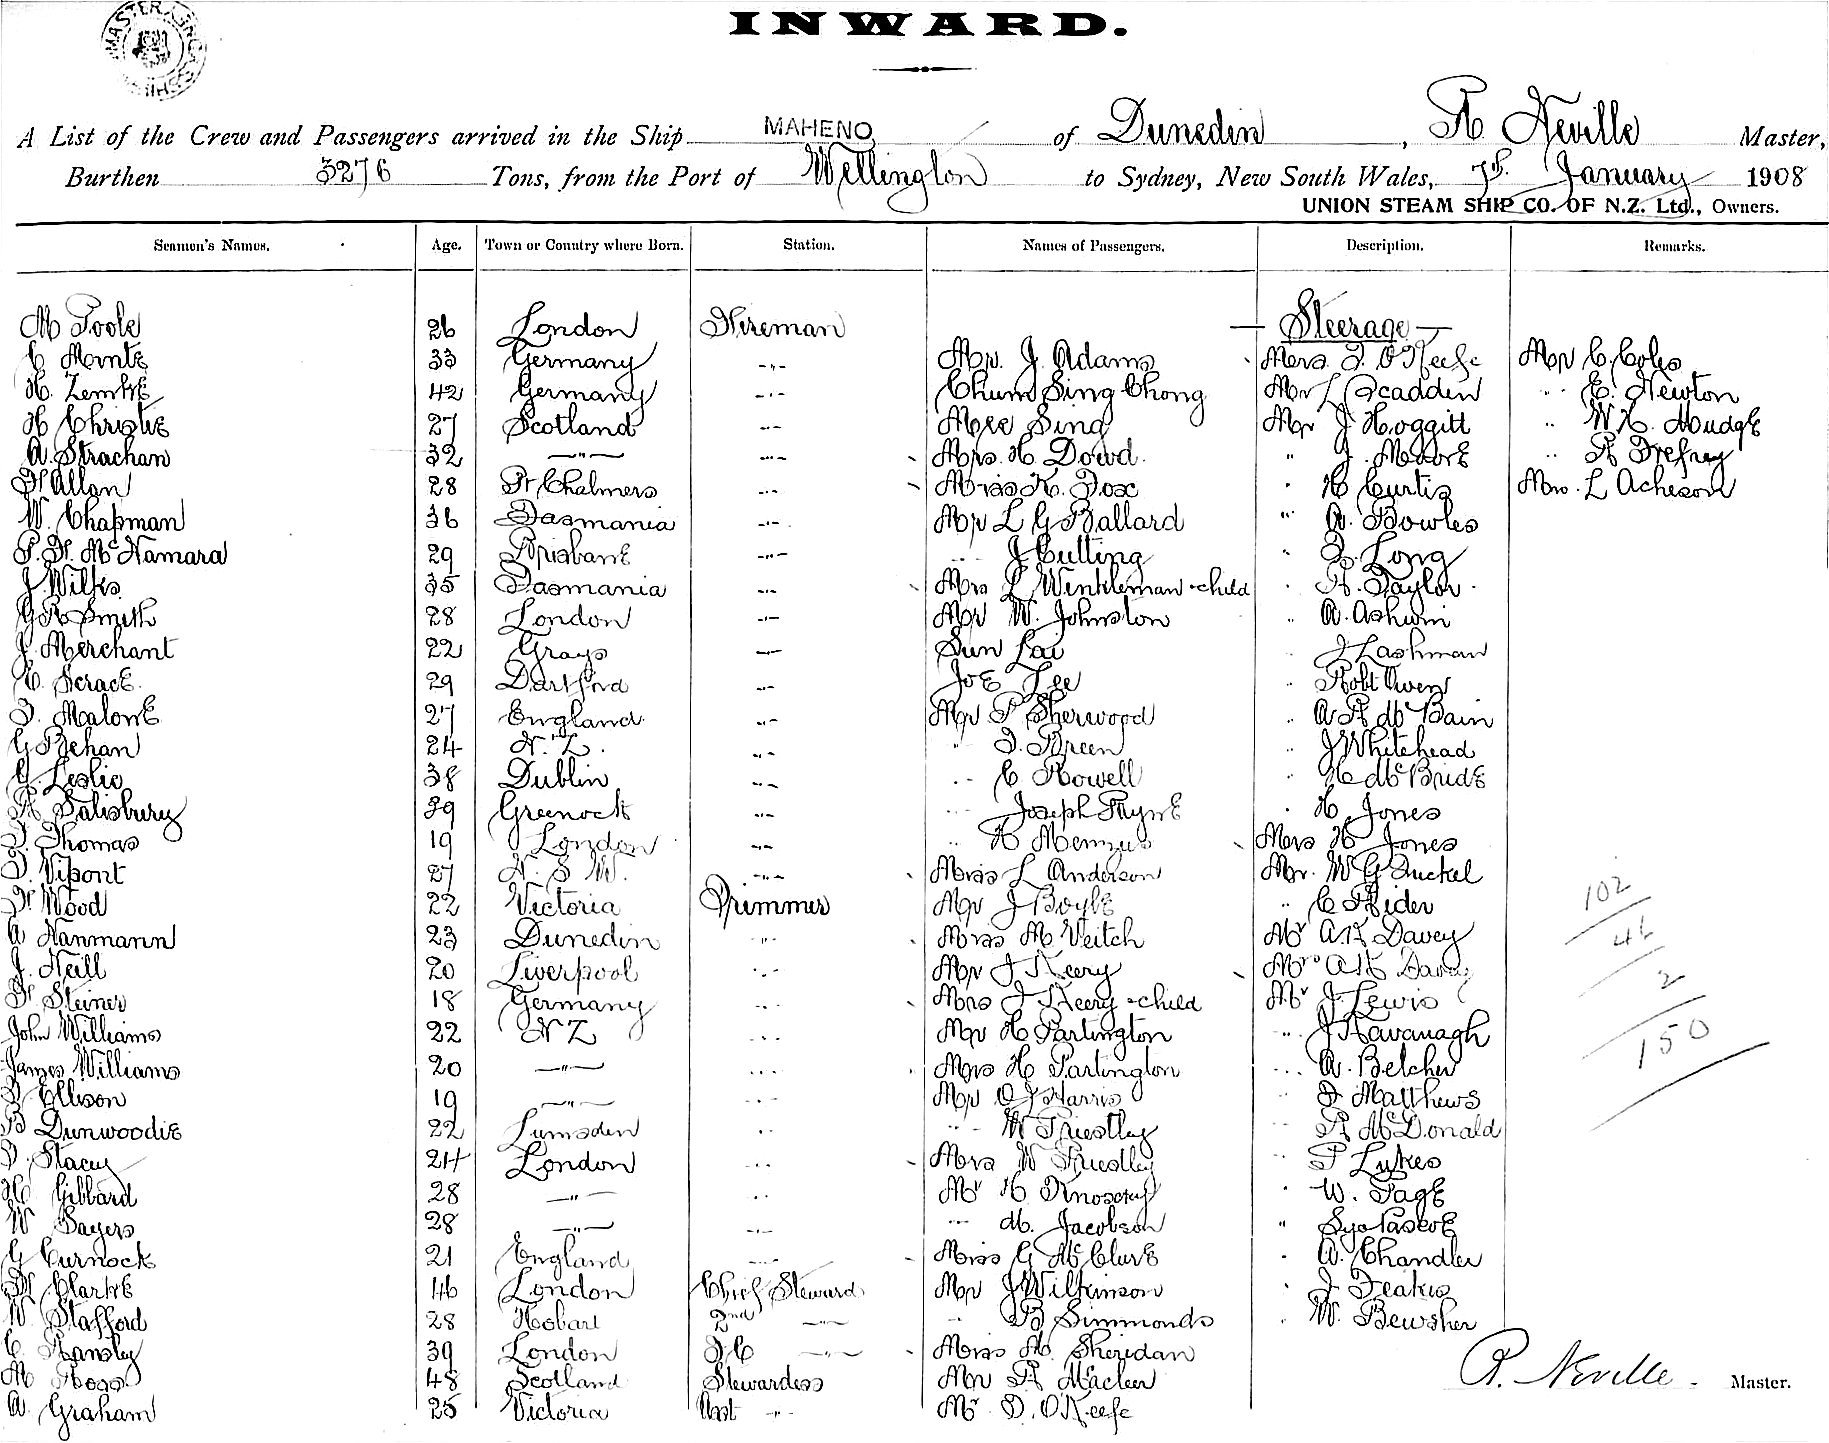 INWARD.
A List of the Crew and Passengers arrived in the Ship MAHENO of Dunedin, R Neville Master,
Burthen 3276 Tons, from the Port of Wellington to Sydney, New South Wales, 7th January 1908
UNION STEAM SHIP CO. OF N.Z. Ltd., Owners.
Seamen's Names. Age. Town or Country where Born. Station. Names of Passengers. Description. Remarks.
M Poole 26 London Fireman — Steerage —
33 Germany -"- Mr. J. Adams F. O'Keefe Mr C. Coles
H. Zemke 42 Germany -"- Chum Sing Chong Mr L Scadden " E. Newton
H Christie 27 Scotland -"- Mee Sing Mr J Hoggitt " W. H. Mudge
A. Strachan 32 —"— -"- Mrs. H Dowd. " J. Moore "
F Allan 28 Pt Chalmers -"- Miss K. Fox " H Curtis L Acheson
W. Chapman 36 Tasmania -"- Mr L G Ballard " A. Bowles
P. F. McNamara 29 Brisbane -"- " J Cutting " F. Long
J. Wilks 35 Tasmania -"- Mrs L Winkleman + child " R. Taylor
G R Smith 28 London -"- Mr W. Johnston " A. Ashwin
J. Merchant 22 Grays -"- Sun Lai " J Lashman
E. Scrace. 29 Dartford -"- Joe Lee " Robt Owens
F. Malone 27 England -"- Mr P Sherwood " A R McBain
G Behan 24 N.Z. -"- " F. Breen " J Whitehead
G. Leslie 38 Dublin -"- " C Howell " H McBride
R Salisbury 39 Greenock -"- " Joseph Payne " H. Jones
F. Thomas 19 London -"- " H Mrs H Jones
F. Vipont 27 N. S. W. -"- Miss L Anderson Mr. W G Quickel
F Wood 22 Victoria Trimmer Mr J Boyle " C Rider
A Hanmann 23 Dunedin -"- Miss M Veitch Mr A.H Davey
J. Neill 20 Liverpool -"- Mr J Keery Mrs A H Davey
F Steiner 18 Germany -"- Mrs J Keery + child Mr J. Lewis
John Williams 22 N Z -"- Mr H Partington " J Kavanagh
James Williams 20 —"— -"- Mrs H Partington " A. Belcher
Ellison 19 —"— -"- Mr O J Harris " F Matthews
B Dunwoodie 22 Lumsden -"- " W Priestley " R McDonald
F. Stacey 24 London -"- Mrs W Priestley " P Lukes
H Gibbard 28 —"— -"- Mr H " W. Page
W Sayers 28 —"— -"- " M. Jacobson " Pascoe
G Curnock 21 England -"- Miss G McClure " A. Chandler
F Clarke 46 London Chief Steward Mr J Wilkinson " J Feakis
W. Stafford 28 Hobart 2nd —"— " B Simmonds " W. Bewsher
C. Hansley 39 London F C —"— Miss M. Sheridan
M 48 Scotland Stewardess Mr R Macleer
A. Graham 25 Victoria Asst -"- Mr D. O'Keefe
102
46
2
150
R. Neville Master.